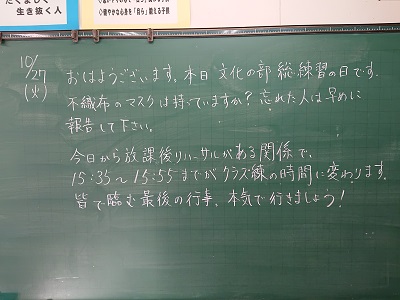 生き抜く人
10/27
(火)
おはようございます。本日 文化の部 総練習の日です。
不織布のマスクは持っていますか？忘れた人は早めに
報告して下さい。
今日から放課後リハーサルがある関係で、
15:35～15:55までがクラス練の時間に変わります。
皆で臨む最後の行事。本気で行きましょう！